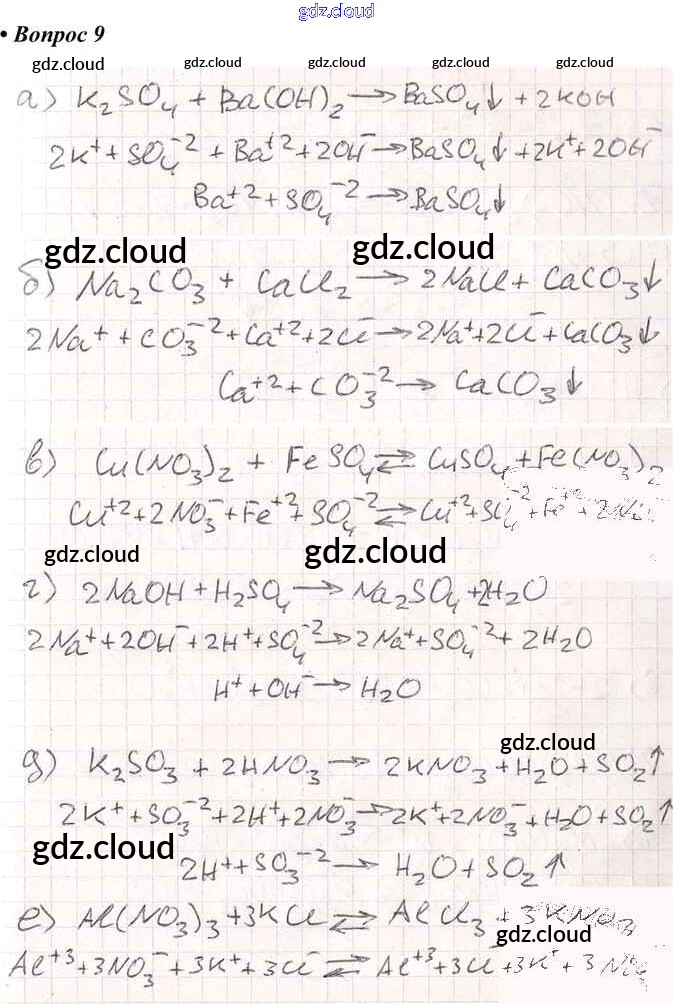 gdz.cloud
• Вопрос 9
gdz.cloud gdz.cloud gdz.cloud gdz.cloud gdz.cloud
а) K₂SO₄ + Ba(OH)₂ → BaSO₄↓ + 2KOH
2K⁺ + SO₄⁻² + Ba⁺² + 2OH⁻ → BaSO₄↓ + 2K⁺ + 2OH⁻
Ba⁺² + SO₄⁻² → BaSO₄↓
gdz.cloud gdz.cloud
б) Na₂CO₃ + CaCl₂ → 2NaCl + CaCO₃↓
2Na⁺ + CO₃⁻² + Ca⁺² + 2Cl⁻ → 2Na⁺ + 2Cl⁻ + CaCO₃↓
Ca⁺² + CO₃⁻² → CaCO₃↓
в) Cu(NO₃)₂ + FeSO₄ ⇄ CuSO₄ + Fe(NO₃)₂
Cu⁺² + 2NO₃⁻ + Fe⁺² + SO₄⁻² ⇄ Cu⁺² + SO₄⁻² + Fe⁺² +
gdz.cloud gdz.cloud
г) 2NaOH + H₂SO₄ → Na₂SO₄ + 2H₂O
2Na⁺ + 2OH⁻ + 2H⁺ + SO₄⁻² → 2Na⁺ + SO₄⁻² + 2H₂O
H⁺ + OH⁻ → H₂O
gdz.cloud
д) K₂SO₃ + 2HNO₃ → 2KNO₃ + H₂O + SO₂↑
2K⁺ + SO₃⁻² + 2H⁺ + 2NO₃⁻ → 2K⁺ + 2NO₃⁻ + H₂O + SO₂↑
gdz.cloud
2H⁺ + SO₃⁻² → H₂O + SO₂↑
е) Al(NO₃)₃ + 3KCl ⇄ AlCl₃ + 3KNO₃
gdz.cloud
Al⁺³ + 3NO₃⁻ + 3K⁺ + 3Cl⁻ ⇄ Al⁺³ + 3Cl⁻ + 3K⁺ +